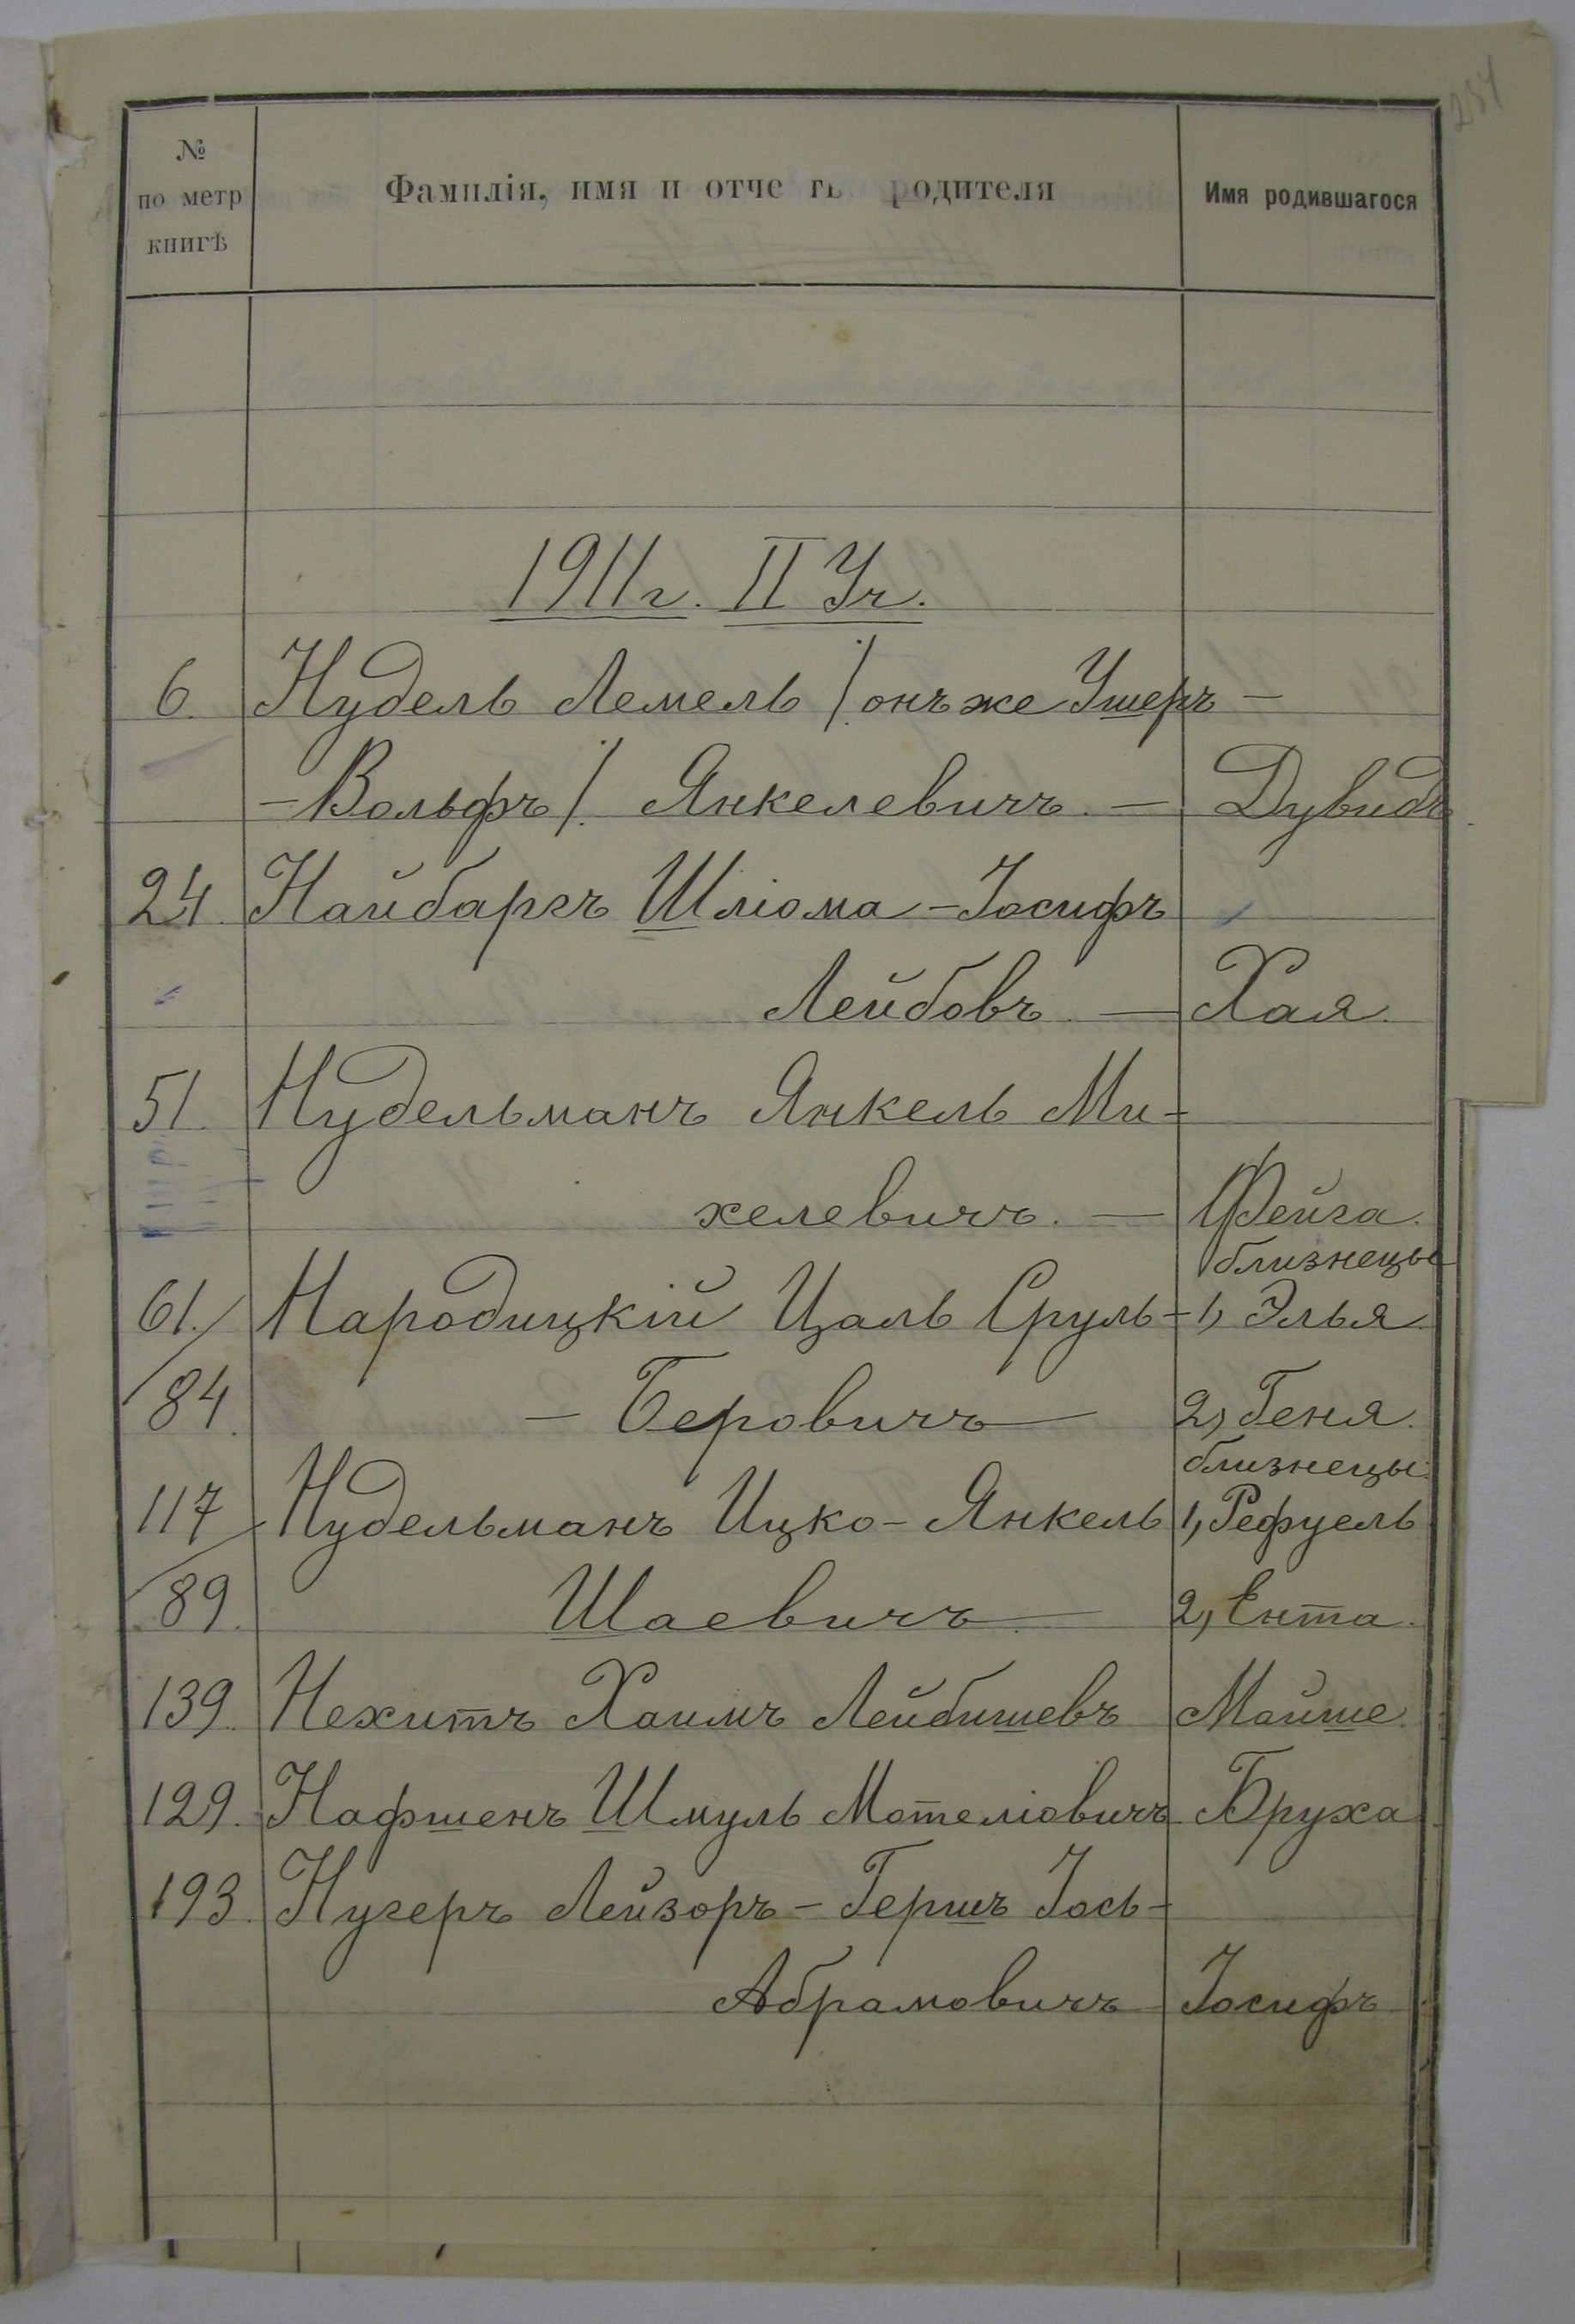 254
№ по метр книгѣ
Фамилія, имя и отче родителя
Имя родившагося
1911 г. II Уч.
6. Нудель Лемель / онъ же Ушеръ —
— Вольфъ / Янкелевичъ. — Дувидъ.
24. Найбаргъ Шліома - Іосифъ
Лейбовъ. — Хая.
51. Нудельманъ Янкель Ми-
хелевичъ. — Фейга.
близнецы
61. / Народицкій Цаль Сруль - 1, Элья
84. — Беровичъ — 2, Геня.
близнецы.
117 / Нудельманъ Ицко - Янкель 1, Рефуель
89. Шаевичъ — 2, Ента.
139. Нехитъ Хаимъ Лейбишевъ Майше.
129. Нафшенъ Шмуль Мотеліовичъ Бруха
193. Нугеръ Лейзоръ - Гершъ Іось-
Абрамовичъ Іосифъ